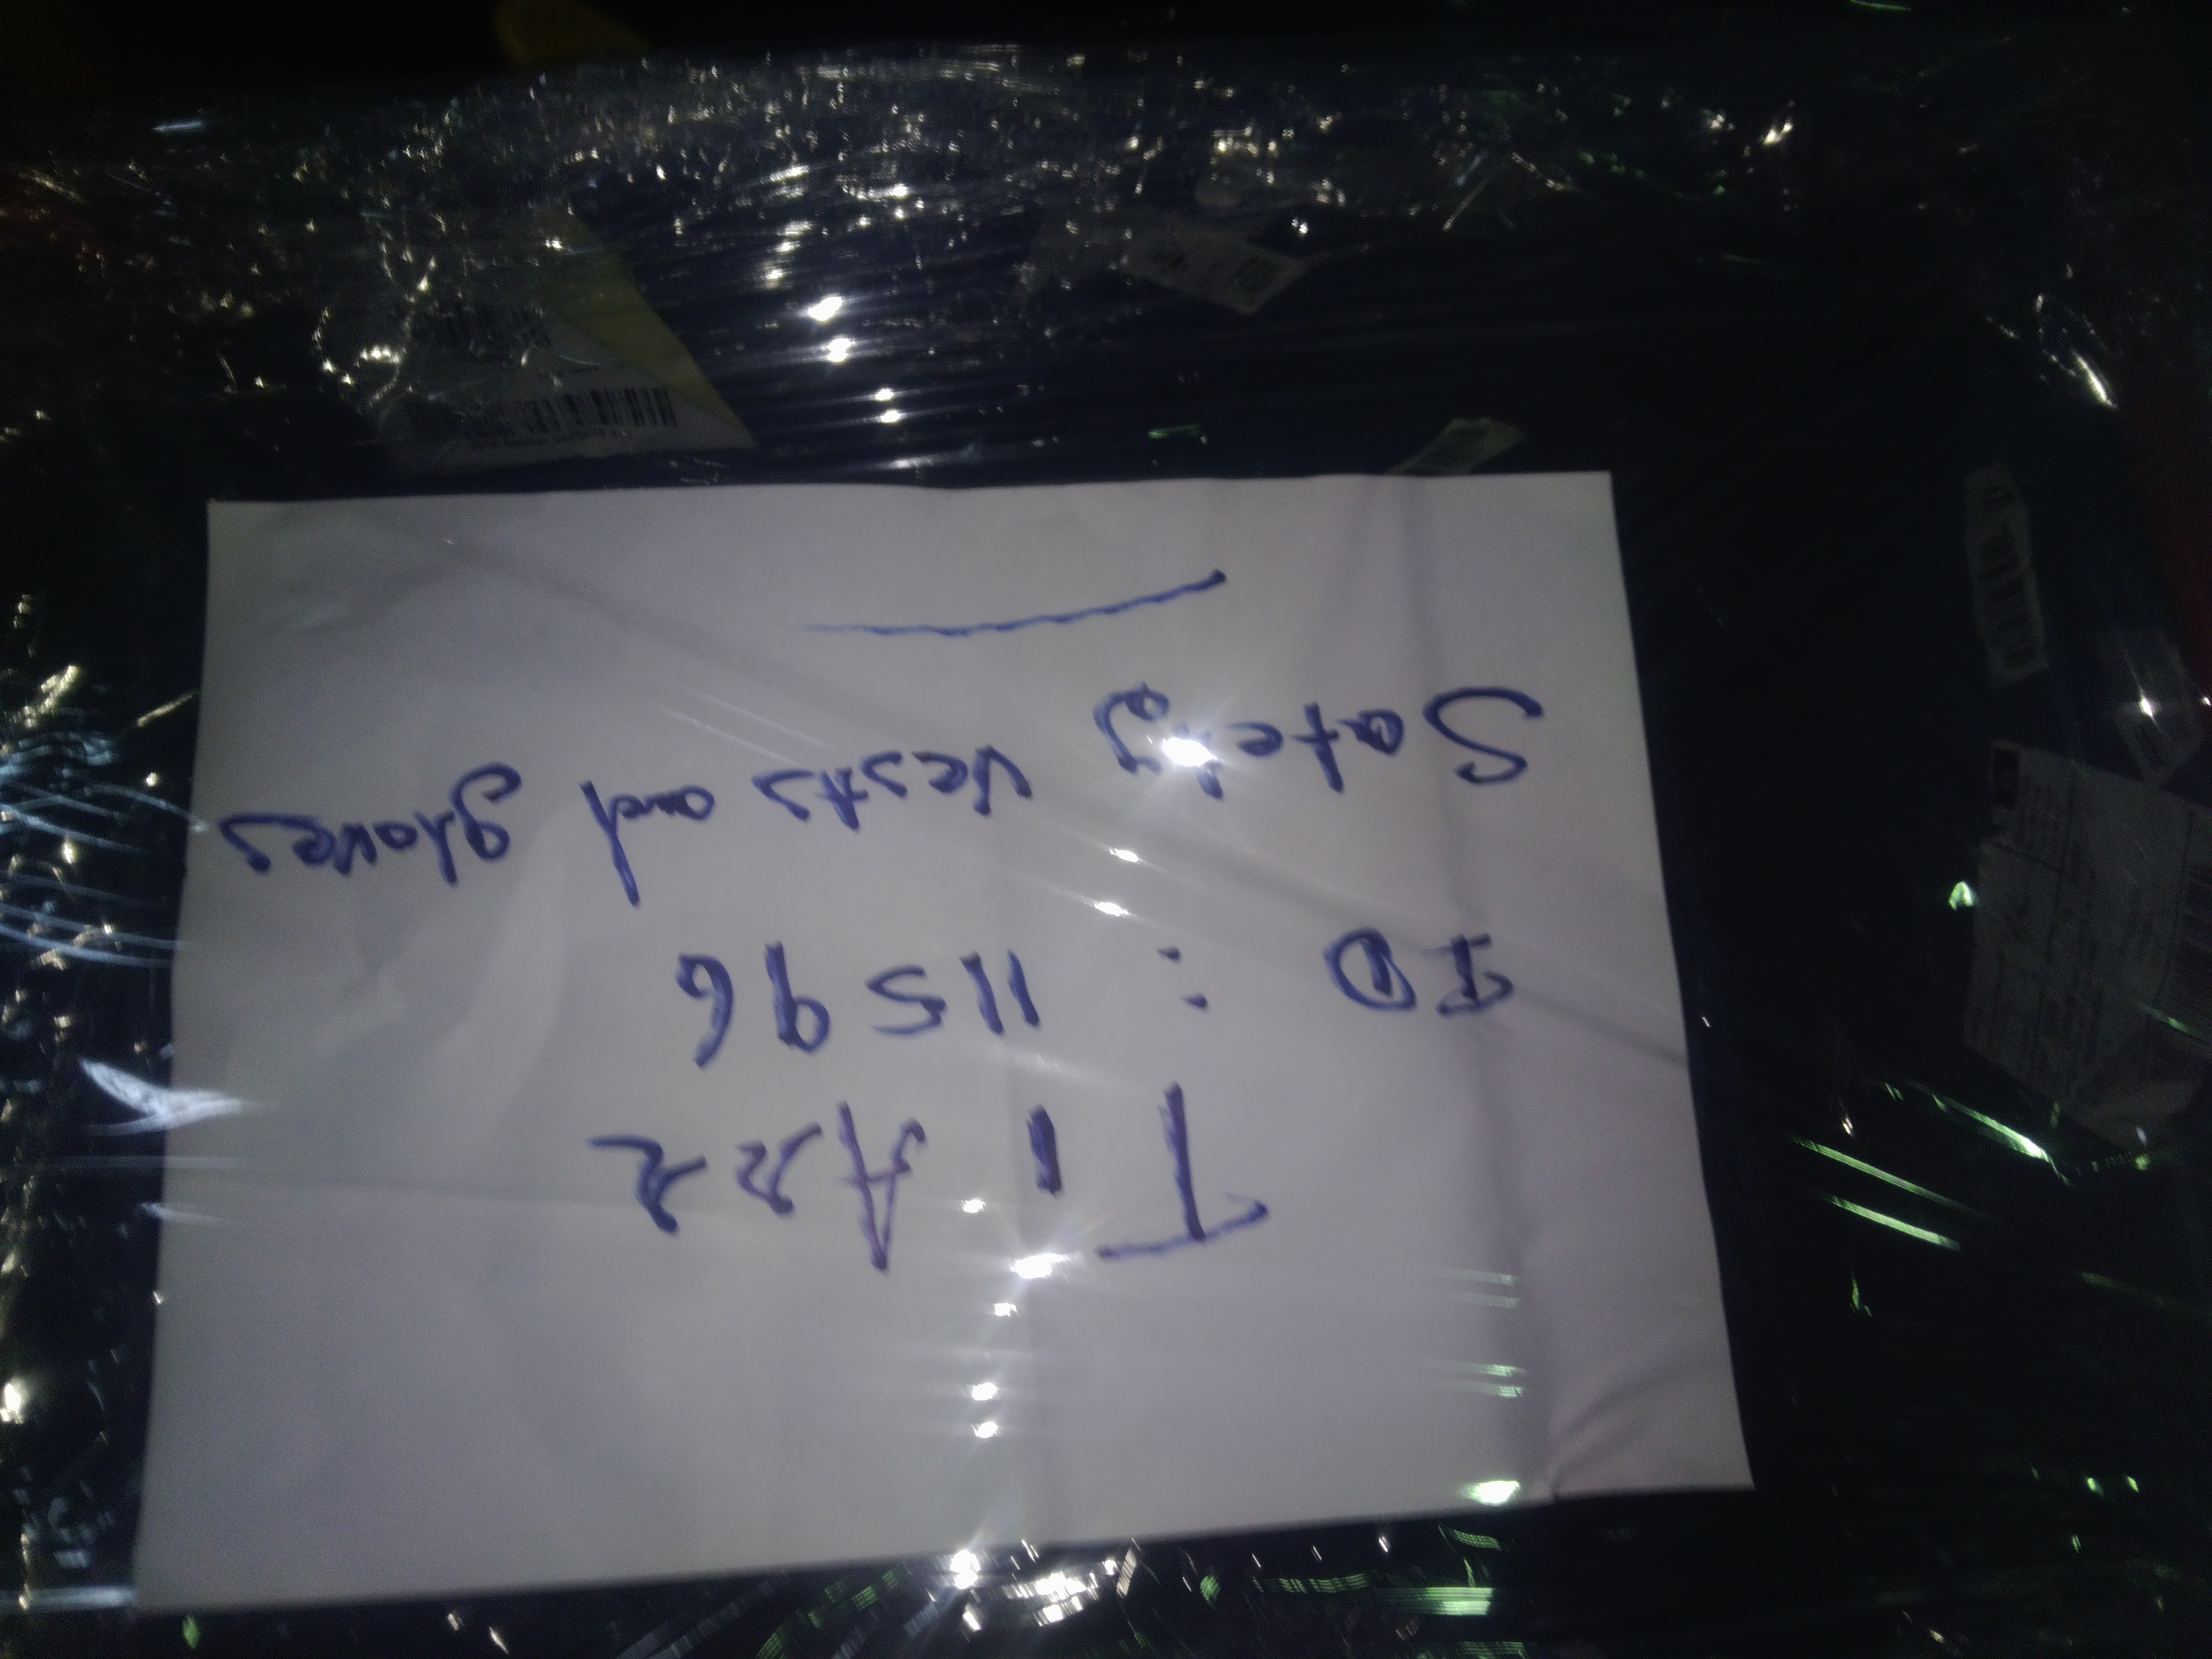 T 1 A22
ID : 11596
Safety vests and gloves